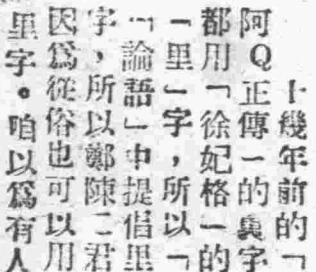 十幾年前的「
阿Q正傳」的裏字
都用「徐妃格」的
「里」字,所以「
「論語」中提倡里
字,所以鄭陳二君
因爲從俗也可以用
里字。咱以爲有人